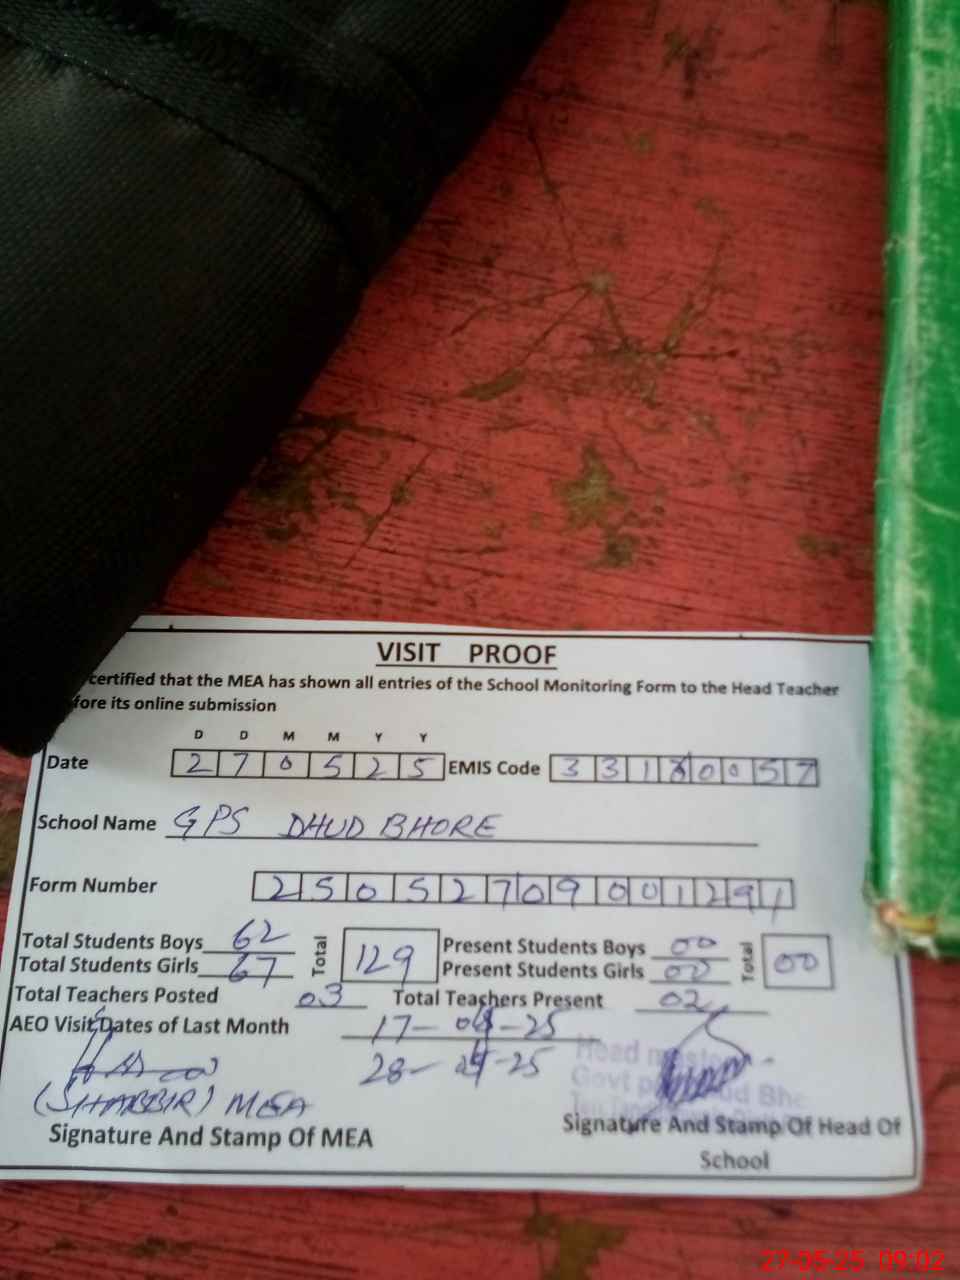 VISIT PROOF
certified that the MEA has shown all entries of the School Monitoring Form to the Head Teacher
fore its online submission
D D M M Y Y
Date 2 7 0 5 2 5 EMIS Code 3 3 1 0 0 5 7
School Name GPS DHUD BHORE
Form Number 2 5 0 5 2 7 0 9 0 0 1 2 9 1
Total Students Boys 62 Total 129 Present Students Boys 00 Total 00
Total Students Girls 67 Present Students Girls 00
Total Teachers Posted 03 Total Teachers Present 02
AEO Visit Dates of Last Month 17- -25
28- -25
Head
Govt
(SHABBIR) MEA
Signature And Stamp Of MEA
Signature And Stamp Of Head Of
School
27-05-25 09:02